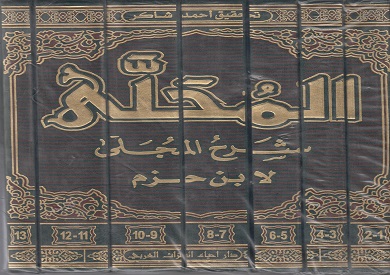 تحقيق أحمد شاكر
المُحَلّى
شرح المجلى
لابن حزم
2-1 4-3 6-5 8-7 10-9 12-11 13
دار احياء التراث العربي